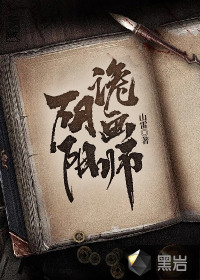 阴阳
诡画师
著
黑岩